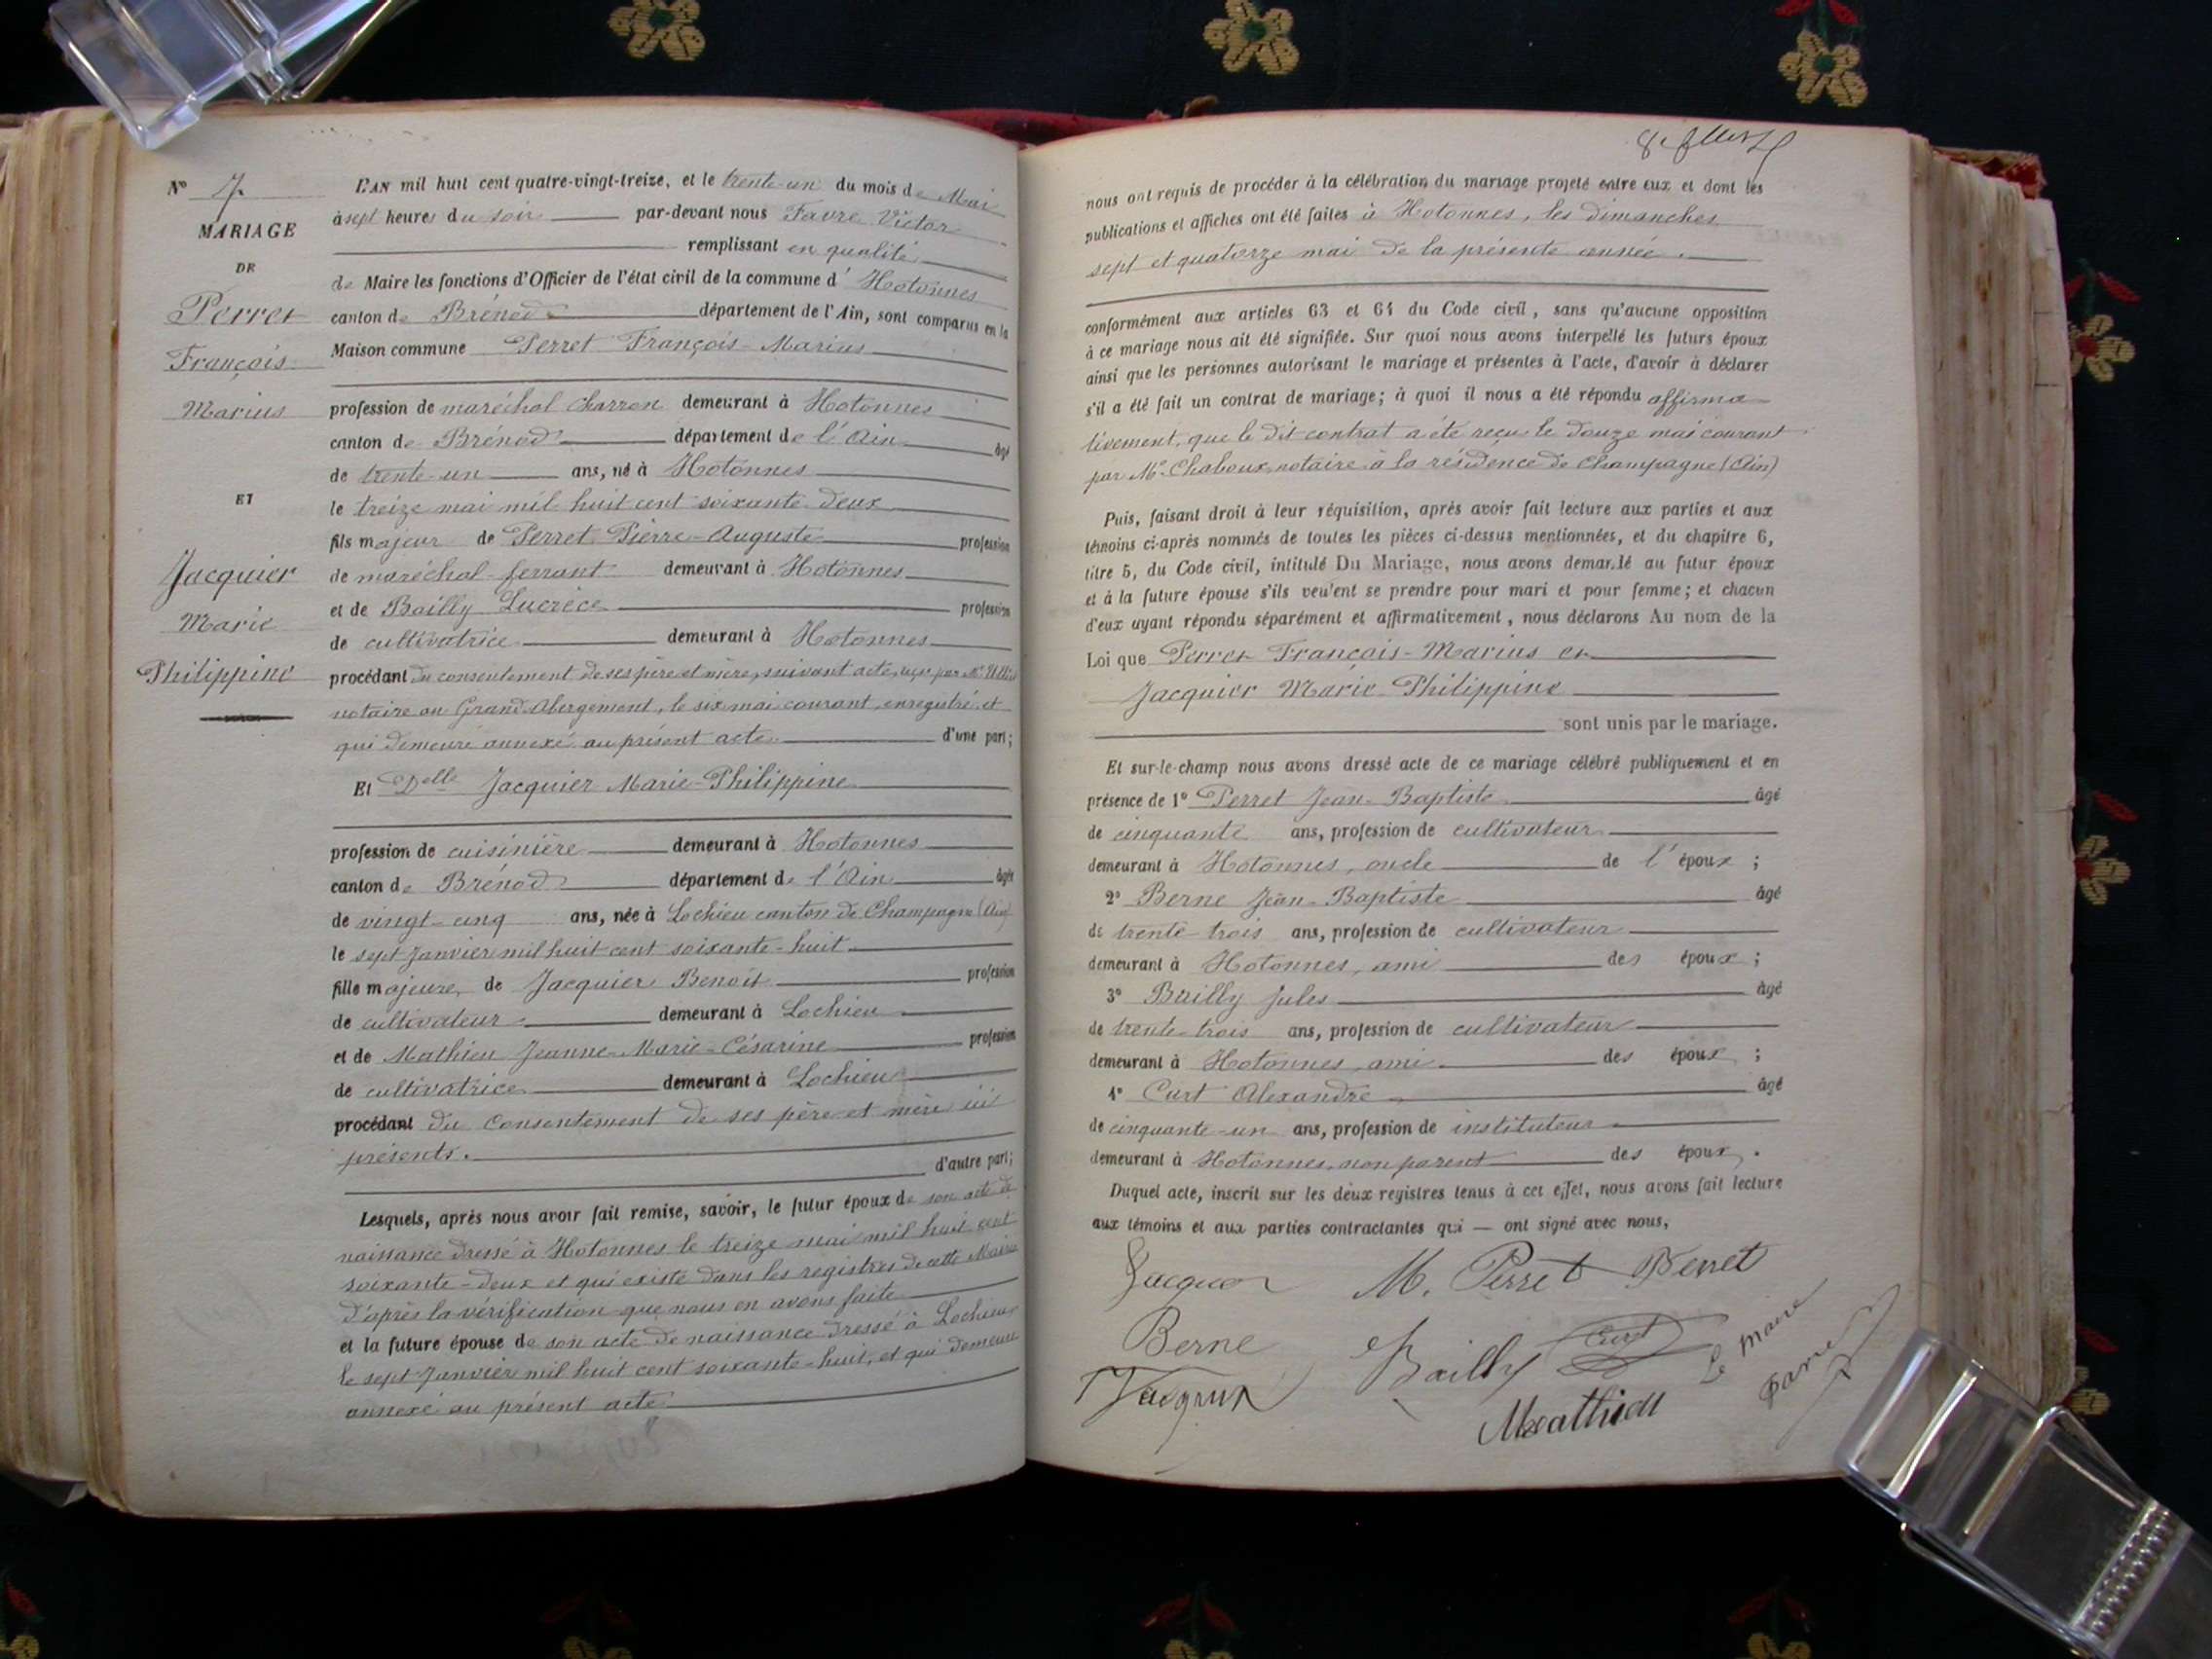 N° 7.
MARIAGE
DE
Perret
François
Marius
ET
Jacquier
Marie
Philippine
L'AN mil huit cent quatre-vingt-treize, et le trente-un du mois de Mai
à sept heures du soir par-devant nous Favre Victor
remplissant en qualité
de Maire les fonctions d'Officier de l'état civil de la commune d' Hotonnes
canton de Brénod département de l'Ain, sont comparus en la
Maison commune Perret François-Marius
profession de maréchal charron demeurant à Hotonnes
canton de Brénod département de l'Ain âgé
de trente-un ans, né à Hotonnes
le treize mai mil huit cent soixante-deux
fils majeur de Perret Pierre-Auguste profession
de maréchal-ferrant demeurant à Hotonnes
et de Bailly Lucrèce profession
de cultivatrice demeurant à Hotonnes
procédant du consentement de ses père et mère, suivant acte, reçu par Me
notaire au Grand-Abergement, le six mai courant, enregistré et
qui demeure annexé au présent acte d'une part;
Et Delle Jacquier Marie-Philippine
profession de cuisinière demeurant à Hotonnes
canton de Brénod département de l'Ain âgée
de vingt-cinq ans, née à Lochieu canton de Champagne (Ain)
le sept Janvier mil huit cent soixante-huit
fille majeure de Jacquier Benoît profession
de cultivateur demeurant à Lochieu
et de Mathieu Jeanne-Marie-Césarine profession
de cultivatrice demeurant à Lochieu
procédant du consentement de ses père et mère ici
présents. d'autre part;
Lesquels, après nous avoir fait remise, savoir, le futur époux de son acte de
naissance dressé à Hotonnes le treize mai mil huit cent
soixante-deux et qui existe dans les registres de cette Mairie
d'après la vérification que nous en avons faite
et la future épouse de son acte de naissance dressé à Lochieu
le sept Janvier mil huit cent soixante-huit, et qui demeure
annexé au présent acte
nous ont requis de procéder à la célébration du mariage projeté entre eux et dont les
publications et affiches ont été faites à Hotonnes, les dimanches
sept et quatorze mai de la présente année.
conformément aux articles 63 et 64 du Code civil, sans qu'aucune opposition
à ce mariage nous ait été signifiée. Sur quoi nous avons interpellé les futurs époux
ainsi que les personnes autorisant le mariage et présentes à l'acte, d'avoir à déclarer
s'il a été fait un contrat de mariage; à quoi il nous a été répondu affirma-
tivement, que le dit contrat a été reçu le douze mai courant
par Me Chaboux notaire à la résidence de Champagne (Ain)
Puis, faisant droit à leur réquisition, après avoir fait lecture aux parties et aux
témoins ci-après nommés de toutes les pièces ci-dessus mentionnées, et du chapitre 6,
titre 5, du Code civil, intitulé Du Mariage, nous avons demandé au futur époux
et à la future épouse s'ils veulent se prendre pour mari et pour femme; et chacun
d'eux ayant répondu séparément et affirmativement, nous déclarons Au nom de la
Loi que Perret François-Marius et
Jacquier Marie-Philippine
sont unis par le mariage.
Et sur-le-champ nous avons dressé acte de ce mariage célébré publiquement et en
présence de 1° Perret Jean-Baptiste âgé
de cinquante ans, profession de cultivateur
demeurant à Hotonnes, oncle de l'époux;
2° Berne Jean-Baptiste âgé
de trente-trois ans, profession de cultivateur
demeurant à Hotonnes, ami des époux;
3° Bailly Jules âgé
de trente-trois ans, profession de cultivateur
demeurant à Hotonnes, ami des époux;
4° Curt Alexandre âgé
de cinquante-un ans, profession de instituteur
demeurant à Hotonnes, non parent des époux.
Duquel acte, inscrit sur les deux registres tenus à cet effet, nous avons fait lecture
aux témoins et aux parties contractantes qui — ont signé avec nous,
M. Perret Perret
Berne Bailly Curt Le Maire
Favre
Mathieu